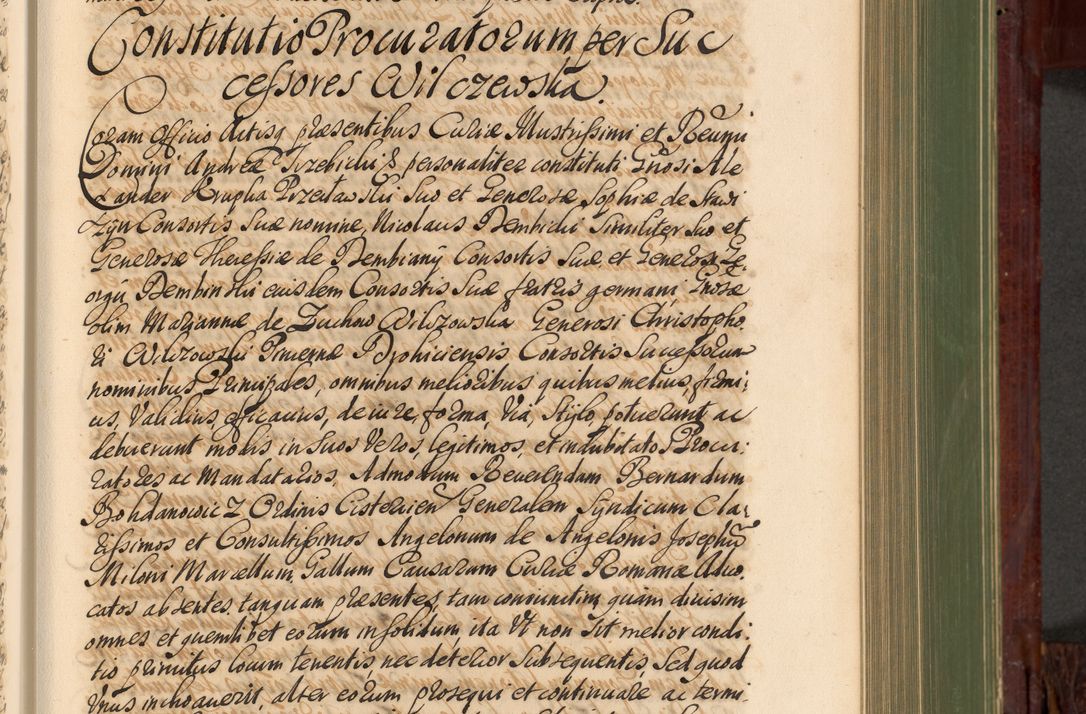 Constitutio Procuratorum per Suc
cessores Wilczewska.
Coram Officio Actisq. præsentibus Curiæ Illustrissimi et Reverni
Domini Andreæ Trzebicki & personaliter constituti Gnosi Ale
xander Krupka Przecławski Suo et Generosæ Sophiæ de
Consortis Suæ nomine, Nicolaus Dembicki Similiter Suo et
Generosæ Theressiæ de Dembiany Consortis Suæ et Generosi Ge
orgii Dembinski eiusdem Consortis Suæ fratris germani, Gnosæ
olim Mariannæ de Zuchow Wilczowska Generosi Christopho
ri Wilczowski Pincernæ Drohiciensis Consortis Successorum
nominibus Principales, omnibus melioribus quibus melius, firmi:
us, Validius, efficacius, de iure, forma, Via, Stylo, potuerunt ac
debuerunt modis in Suos Veros, legitimos, et indubitatos Procu:
ratores ac Mandatarios, Admodum Reverendam Bernardum
Bohdanowicz Ordinis Cistercien Generalem Syndicum Cla:
rissimos et Consultissimos Angelonum de Angelonis Josephū
Miloni Marcellum, Gallum Causarum Curiæ Romanæ Advo.
catos absentes tanquam præsentes, tam coniunctim quam divisim
omnes et quemlibet eorum insolidum ita Vt non Sit melior condi:
tio primitus locum tenentis, nec deterior Subsequentis, Sed quod
Vnus inchoaverit, alter eorum prosequi et continuare ac termi